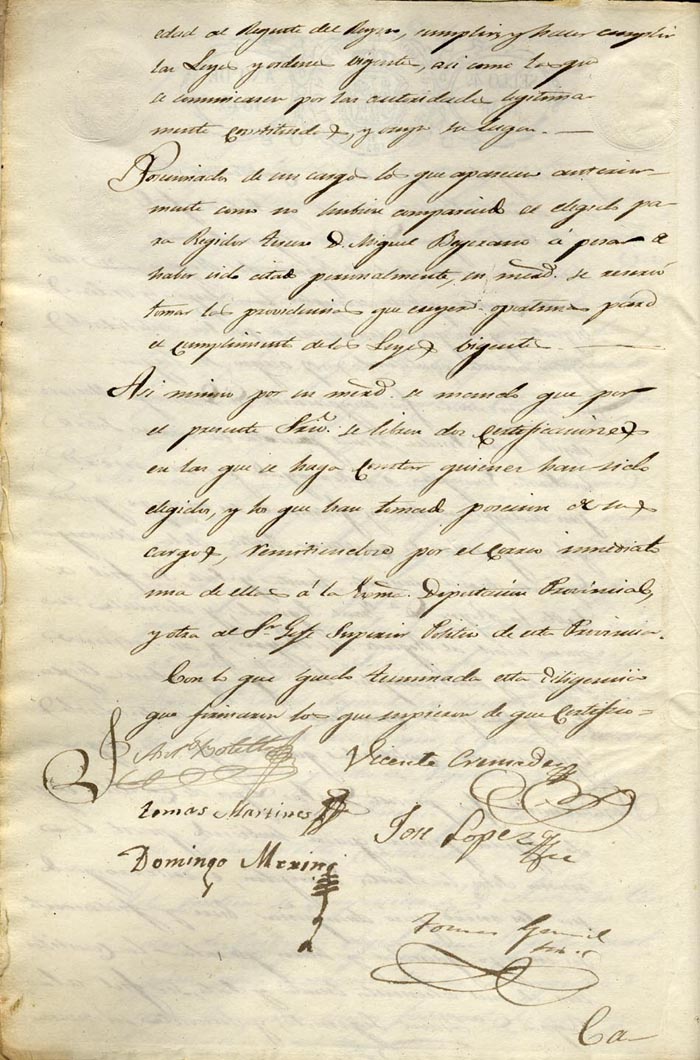 edad al Regente del Reyno, cumplir, y hacer cumplir
las Leyes y ordenes vigentes, asi como las que
se comunicaren por las autoridades legitima
mente constituidas, y en su lugar. —
Posecionados de sus cargos los que aparecen anterior
mente como no hubiese comparecido el elegido pa
ra Regidor tercero D. Miguel Bejerano á pesar de
haber sido citado personalmente, su merd. se reservó
tomar las providencias que creyere oportunas para
el cumplimiento de las Leyes vigentes. —
Asi mismo por su merd. se mandó que por
el presente Srio. se libren dos Certificaciones
en las que se haga constar quienes han sido
elegidos, y los que han tomado posecion de sus
cargos, remitiendose por el Correo inmediato
una de ellas á la Exma. Diputacion Provincial,
y otra al Sr. Gefe Superior Politico de esta Provincia.
Con lo que quedó terminada esta diligencia
que firmaron los que supieron de que Certifico =
Vicente Cremades
Tomas Martines
Jose Lopez
Domingo
Tomas
Ca-